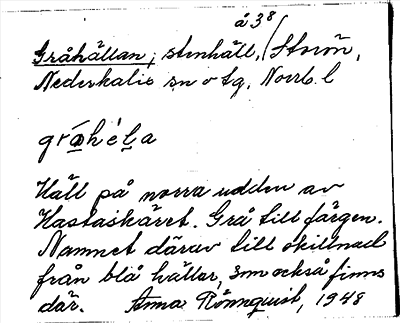 å 38
Gråhällan, stenhäll, / Storön,
Nederkalix sn o tg, Norrb. l
gró̱héḻa
Häll på norra udden av
Hastaskäret. Grå till färgen.
Namnet därav till skillnad
från blå hällar, som också finns
där. Anna Rönnquist, 1948